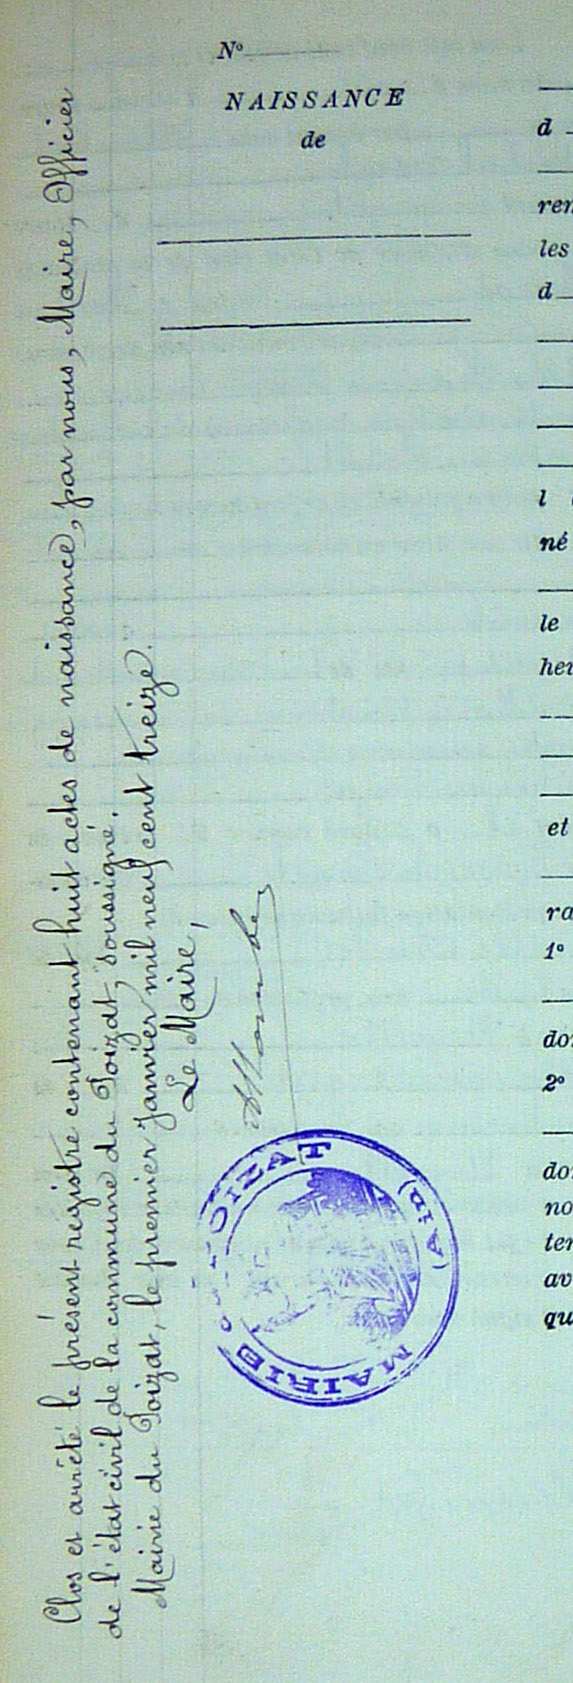 Clos et arrêté le présent registre contenant huit actes de naissance, par nous, Maire, Officier
de l'état civil de la commune du Poizat, soussigné.
Mairie du Poizat, le premier janvier mil neuf cent treize.
Le Maire,
MAIRIE POIZAT
(AIN)
N°
NAISSANCE
de
d
ren
les
d
l
né
le
heu
et
ra
1°
don
2°
don
no
ter
av
qu